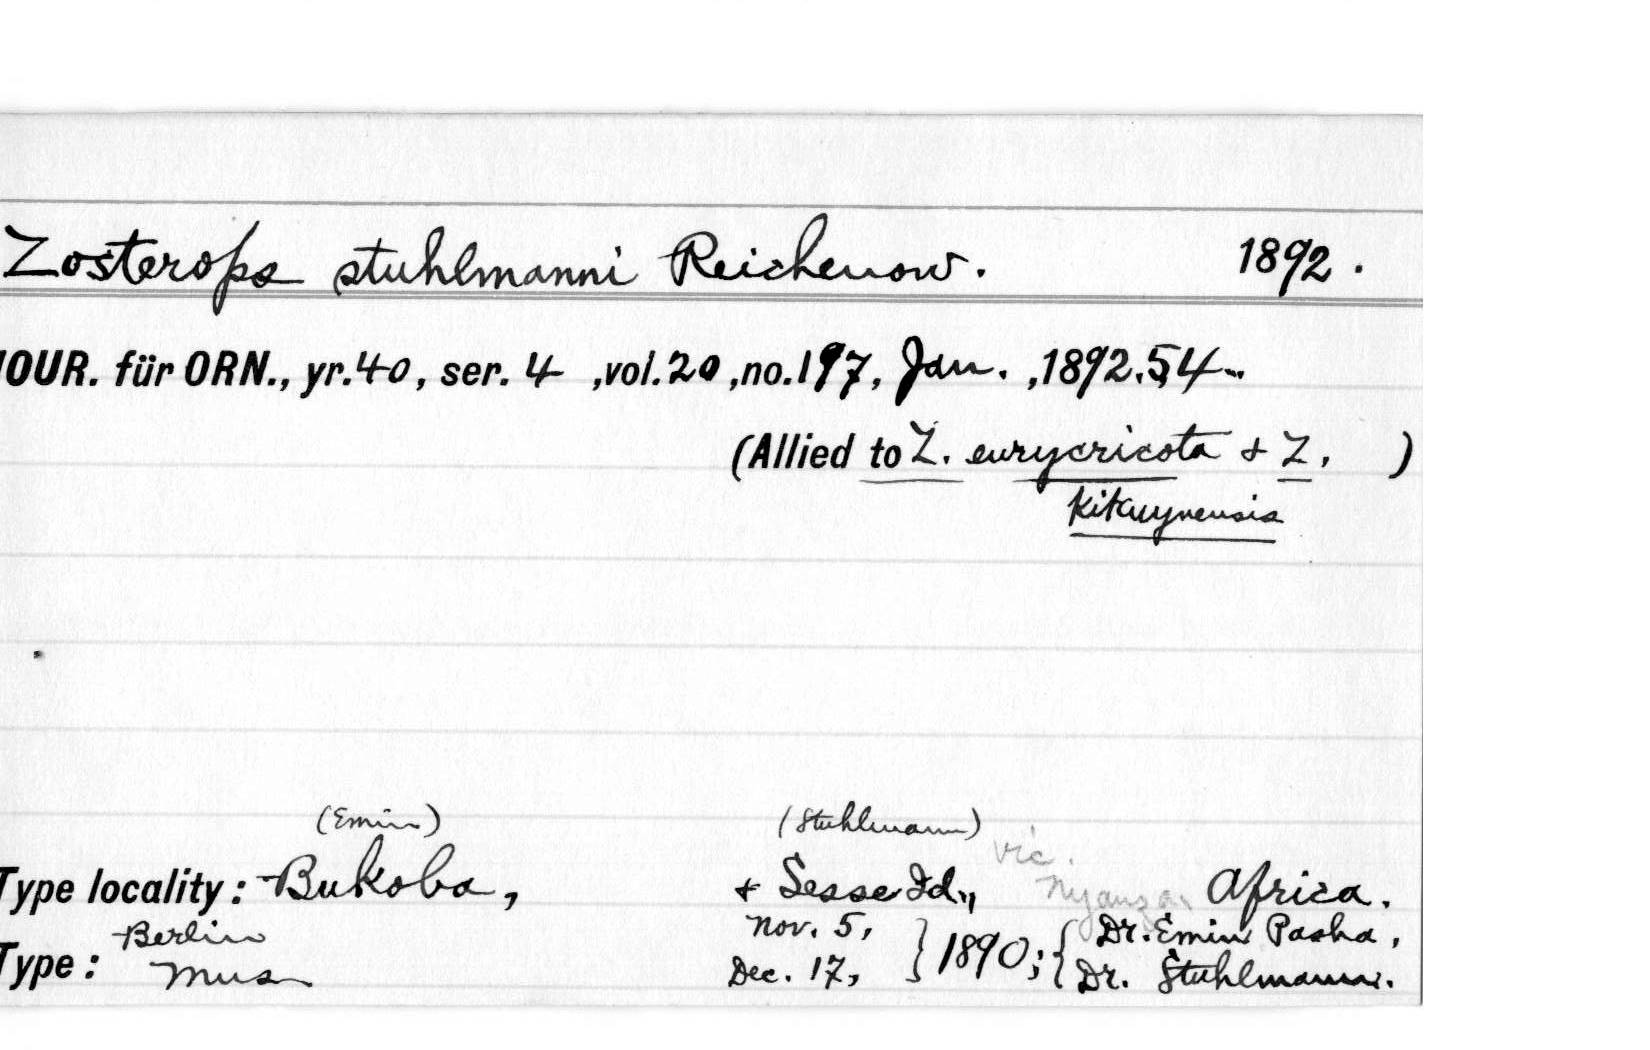 Zosterops stuhlmanni Reichenow. 1892.
JOUR. für ORN., yr.40, ser. 4 ,vol.20 ,no.197, Jan. ,1892.54.
(Allied to Z. eurycricota & Z. )
Kikuyuensis
(Emin) (Stuhlmann)
vic.
Type locality: Bukoba, & Sesse Id., Nyanza, Africa.
Berlin Nov. 5, } 1890; { Dr. Emin Pasha,
Type: Mus Dec. 17, Dr. Stuhlmann.